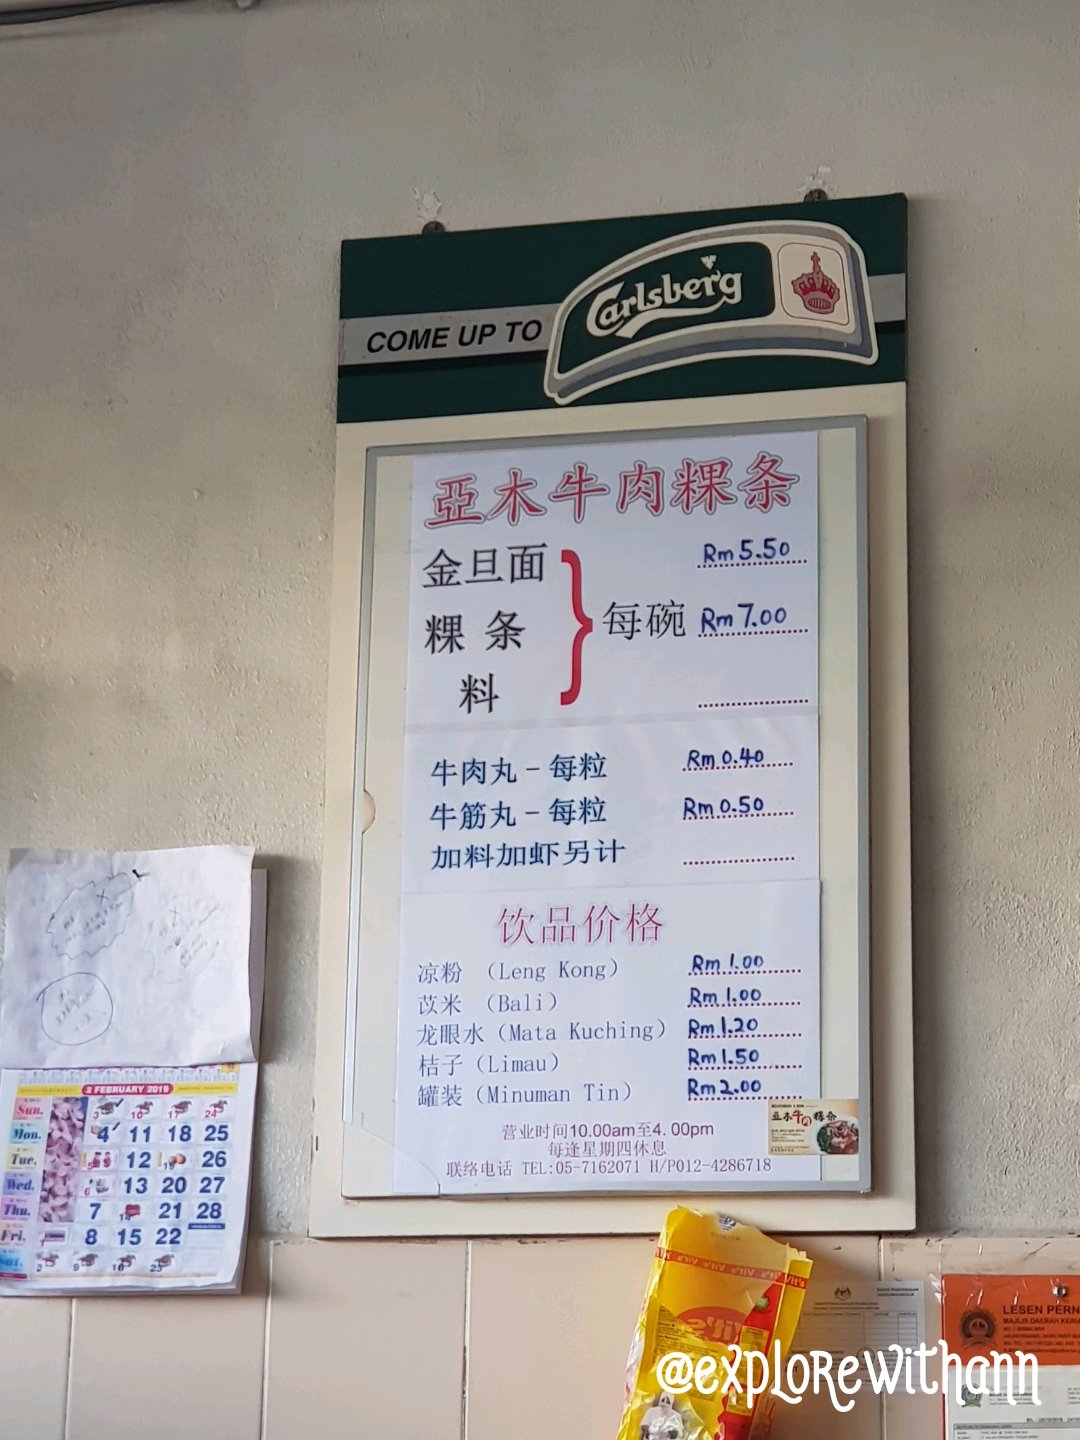 COME UP TO Carlsberg
亞木牛肉粿条
金旦面
粿 条
料
每碗
Rm 5.50
Rm 7.00
牛肉丸-每粒 Rm 0.40
牛筋丸-每粒 Rm 0.50
加料加虾另计
饮品价格
凉粉 (Leng Kong) Rm 1.00
苡米 (Bali) Rm 1.00
龙眼水 (Mata Kuching) Rm 1.20
桔子 (Limau) Rm 1.50
罐装 (Minuman Tin) Rm 2.00
亞木牛肉粿条
营业时间10.00am至4.00pm
每逢星期四休息
联络电话 TEL:05-7162071 H/P012-4286718
2 FEBRUARY 2019
Sun. 3 10 17 24
Mon. 4 11 18 25
Tue. 5 12 19 26
Wed. 6 13 20 27
Thu. 7 14 21 28
Fri. 8 15 22
Sat. 2 9 16 23
Vit's
LESEN PERN
MAJLIS DAERAH KERIA
@explorewithann